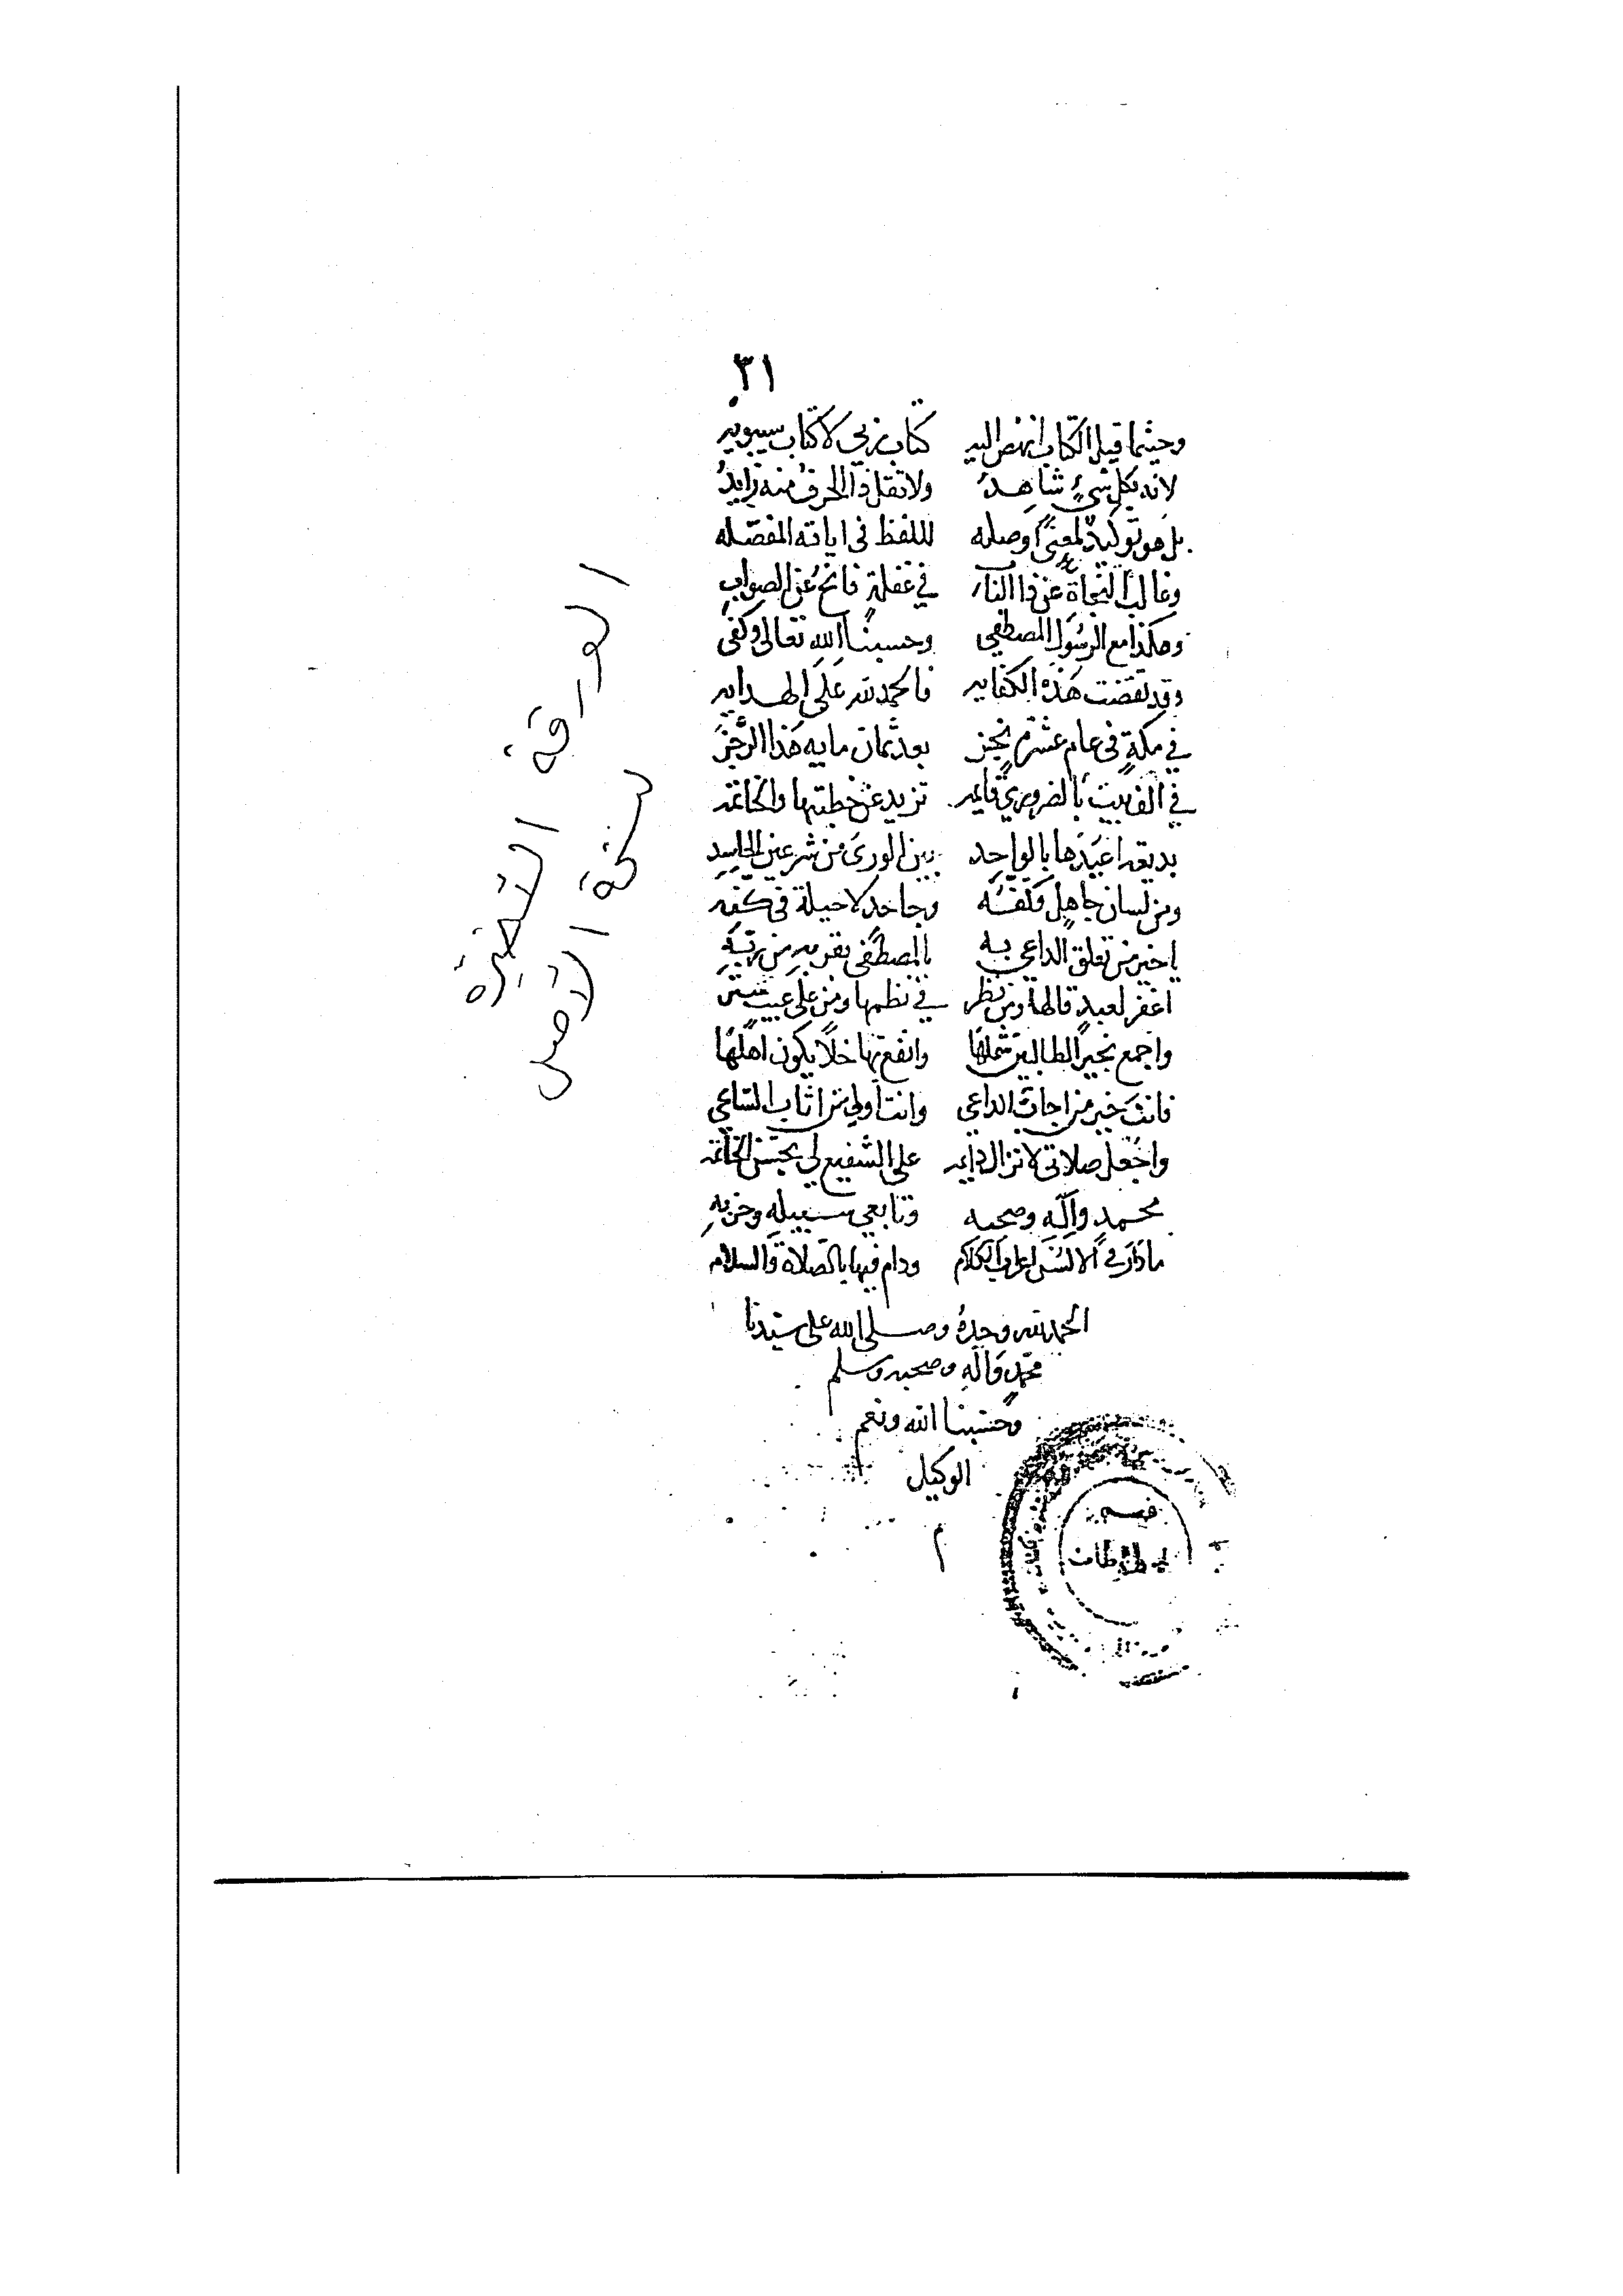 ٣١
وحيثما قيل الكتاب انهض اليه كتاب ربي لا كتاب سيبويه
لانه بكل شيءٍ شاهدُ ولا تقل ذا الحرف منه زايدُ
بل هو توكيدٌ لمعنىً اوصله للفظ في اياته المفصّله
وغالب النحاة عن ذا الباب في غفلةٍ فانحُ عن الصواب
وهكذا مع الرسُول المصطفى وحسبنا الله تعالى وكفى
وقد تقضت هَذه الكفايه فالحمد لله عَلَى الهدايه
في مكةٍ في عام عشرٍ نجز بعد ثمان مايه هَذا الرّجز
في الف بيت بالضروري قايمه تزيد عن خطبتها والخاتمه
بديعه اعيذها بالواحد بين الورى من شر عين الحاسد
ومن لسان جاهلٍ وجاحد لا حيلة في كفه
يا خير من تعلق الداعي به بالمصطفى بقربه من ربّه
اغفر لعبدٍ قالها ومن نظر في نظمها ومن على عيب ستر
واجمع بخير الطالبين شملها وانفع بها خلاً يكون اهلها
فانت خير من اجاب الداعي وانت اولى من اثاب الساعي
واجعل صلاتي لا تزال دايمه على الشفيع لي بحسن الخاتمه
محمدٍ وآلهِ وصحبه وتابعي سبيله وحزبه
ما دار في الالسُن اعراب الكلام ودام فيها بالصلاة والسلام
الحمد لله وحدهُ وصلى الله على سيدنا
محمدٍ وآلهِ وصحبه وسلم
وحسبنا الله ونعم
الوكيل
م
الورقة الأخيرة
نسخة الأصل
قسم
المخطوطات